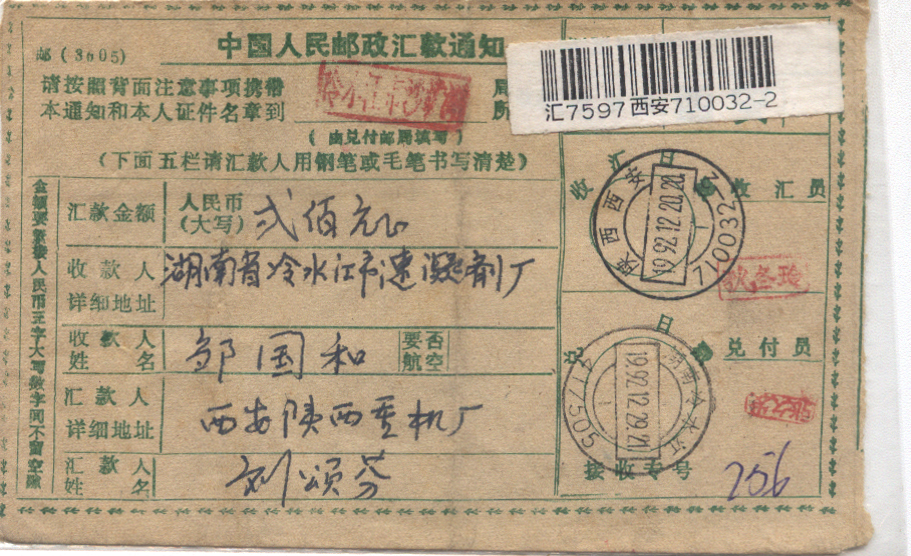 中国人民邮政汇款通知
邮(3605)
汇7597西安710032-2
请按照背面注意事项携带 局
本通知和本人证件名章到 所
(由兑付邮局填写)
(下面五栏请汇款人用钢笔或毛笔书写清楚)
金额要紧接人民币三字大写数字间不留空隙
汇款金额 人民币(大写) 弍佰元正
收款人详细地址 湖南省冷水江市速凝剂厂
收款人姓名 邹国和 要否航空
汇款人详细地址 西安陕西重机厂
汇款人姓名 刘颂芬
收汇日 收汇员
陕西西安 19.92.12.20.20 710032
兑 日 兑付员
19.92.12.29.21 417505
接收专号 256